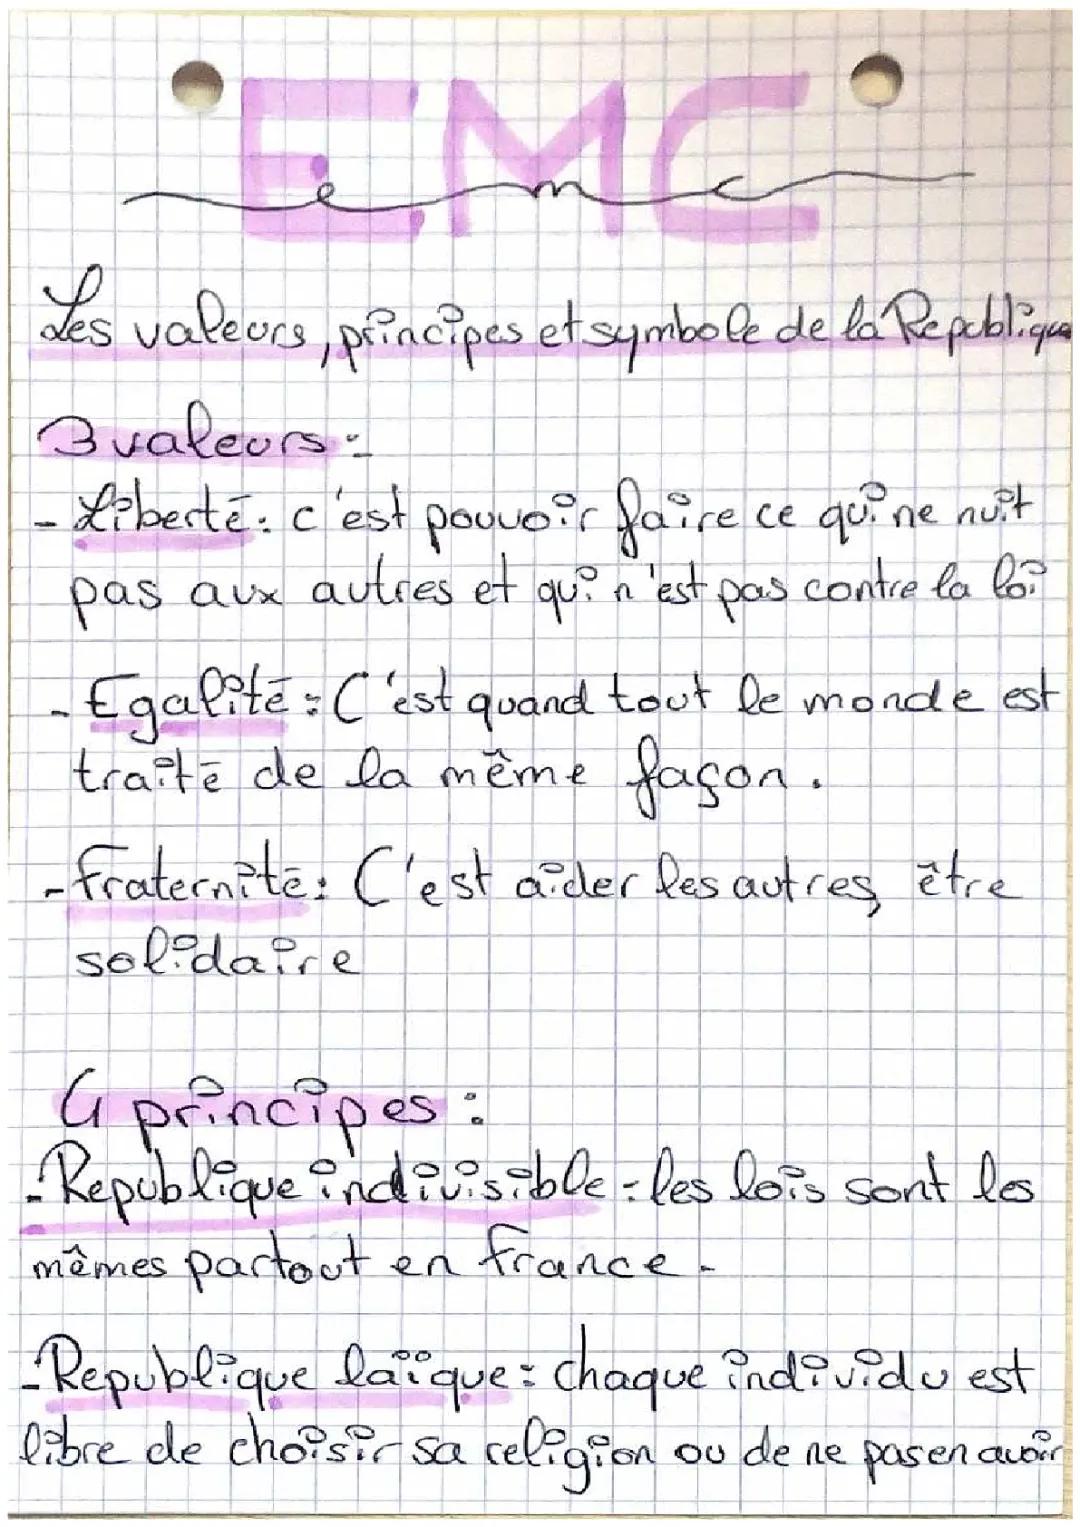 EMC
e m c
Les valeurs, principes et symbole de la Republique
3 valeurs :
- Liberté : c'est pouvoir faire ce qui ne nuit
pas aux autres et qui n'est pas contre la loi
- Egalité : C'est quand tout le monde est
traité de la même façon.
- Fraternité : C'est aider les autres, être
solidaire
4 principes :
- Republique indivisible : les lois sont les
mêmes partout en France.
- Republique laïque : chaque individu est
libre de choisir sa religion ou de ne pas en avoir